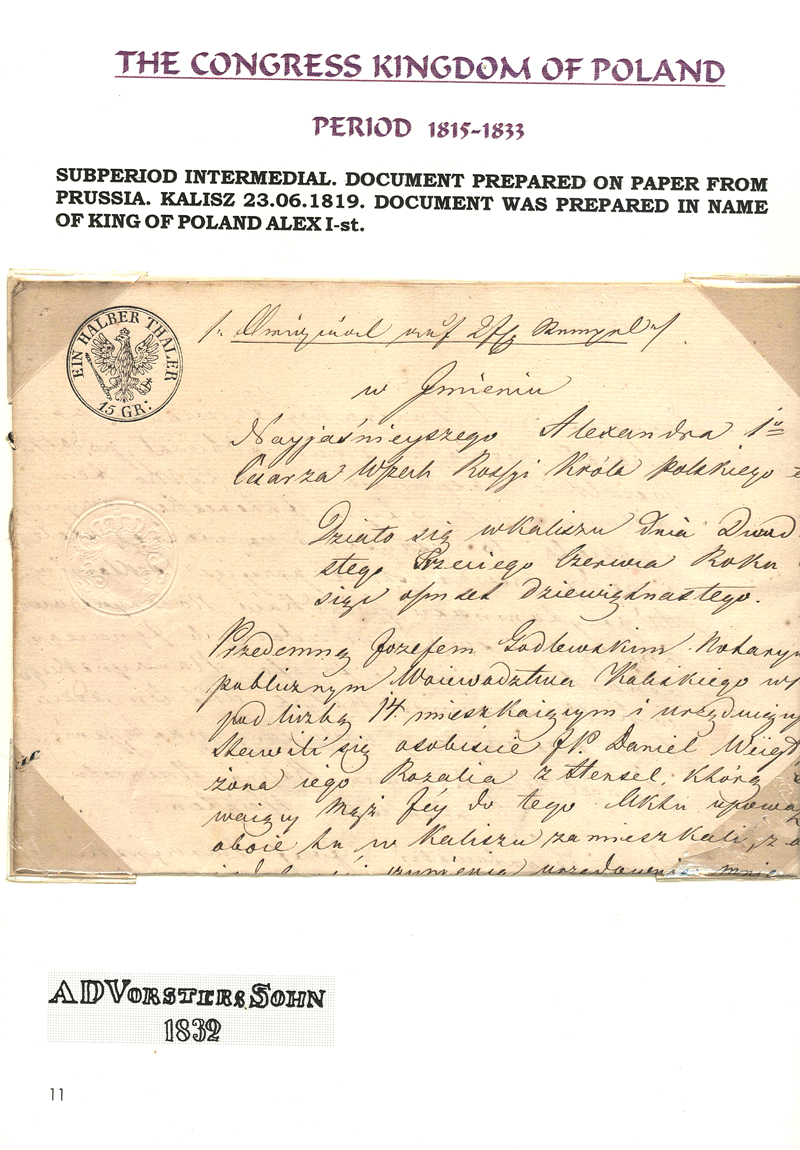 THE CONGRESS KINGDOM OF POLAND
PERIOD 1815-1833
SUBPERIOD INTERMEDIAL. DOCUMENT PREPARED ON PAPER FROM
PRUSSIA. KALISZ 23.06.1819. DOCUMENT WAS PREPARED IN NAME
OF KING OF POLAND ALEX I-st.
EIN HALBER THALER
15 GR:
w Jmieniu
Nayjaśnieyszego Alexandra 1o
Cesarza Wszech Rossyi Króla polskiego
Działo się w Kaliszu dnia Dwud
stego Trzeciego Czerwca Roku
siąc ośmset dziewiętnastego.
Przedemną Jozefem Godlewskim Notaryu
publicznym Woiewodztwa Kaliskiego w
pod liczbą 14. mieszkaiącym i urzęduiący
stawili się osobiscie JP. Daniel
żona iego Rozalia z Hensel, którą
waiący Mąż Jéy do tego Aktu upowa
oboie tu w Kaliszu zamieszkali, z
urzędownie mnie
ADVORSTERS SOHN
1832
11